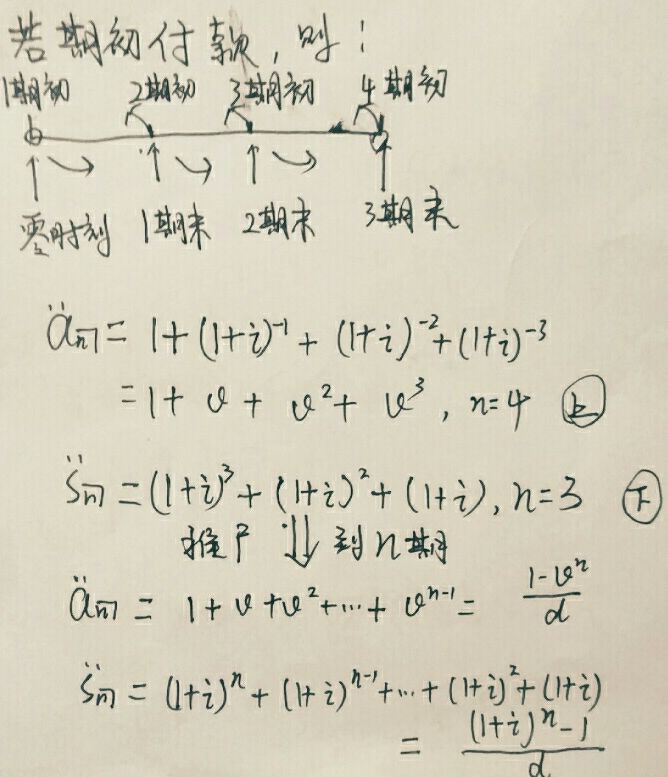 若期初付款,则:
1期初 2期初 3期初 4期初
零时刻 1期末 2期末 3期末
ä_n̅| = 1+(1+i)⁻¹ + (1+i)⁻² + (1+i)⁻³
= 1 + v + v² + v³, n=4 上
s̈_n̅| = (1+i)³ + (1+i)² + (1+i), n=3 下
推广 ⇓ 到n期
ä_n̅| = 1 + v + v² + ... + vⁿ⁻¹ = (1-vⁿ)/d
s̈_n̅| = (1+i)ⁿ + (1+i)ⁿ⁻¹ + ... + (1+i)² + (1+i)
= ((1+i)ⁿ-1)/d